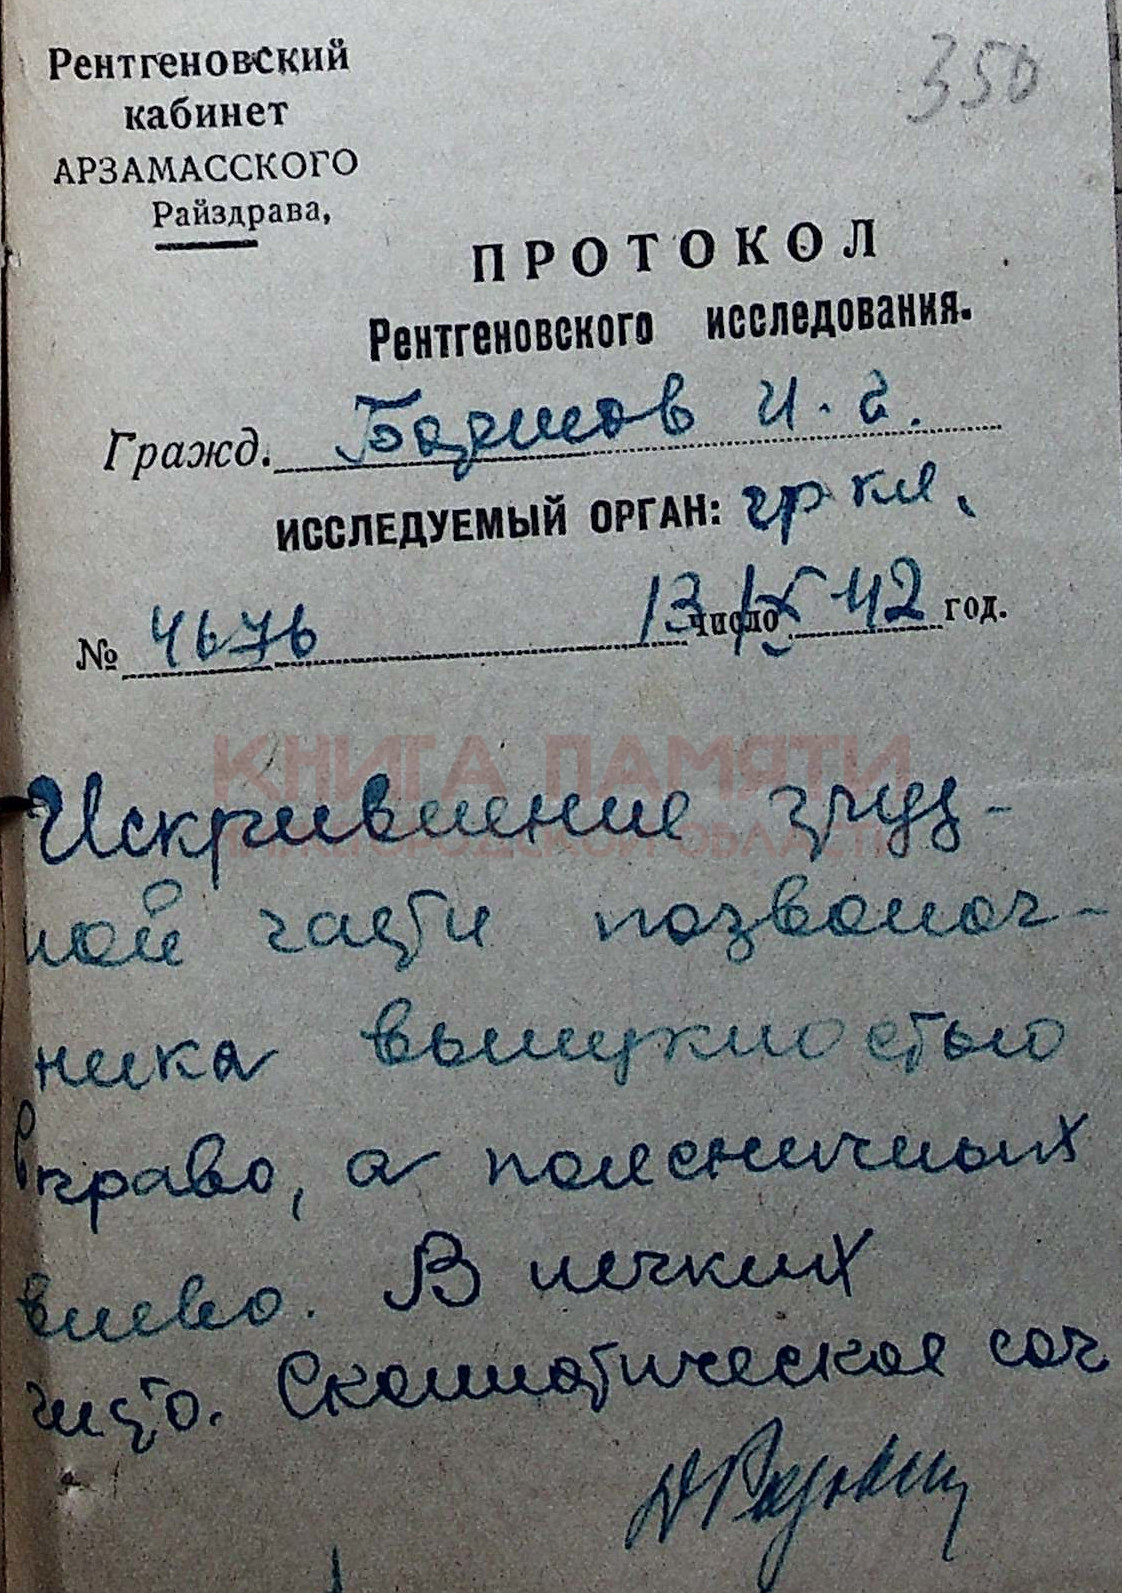 350
Рентгеновский
кабинет
АРЗАМАССКОГО
Райздрава,
ПРОТОКОЛ
Рентгеновского исследования.
Гражд. И. С.
ИССЛЕДУЕМЫЙ ОРГАН: гр кл.
№ 4676 13 число IX 42 год.
КНИГА ПАМЯТИ
НИЖЕГОРОДСКОЙ ОБЛАСТИ
Искривление груд-
ной части позвоноч-
ника выпуклостью
вправо, а поясничных
влево. В легких
чисто. Сколиотическое